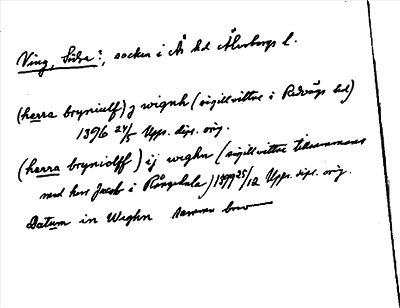 Ving, Södra:, socken i Ås hd Älvsborgs l.
(herra bryniulf) j wignh (sigillvittne i Redvägs hd)
1396 24/5 Upps. dipl. orig.
(herra bryniolff) ij weghn (sigillvittne tillsammans
med herr Jacob i Rångedala) 1399 25/12 Upps. dipl. orig.
Datum in Weghn samma brev